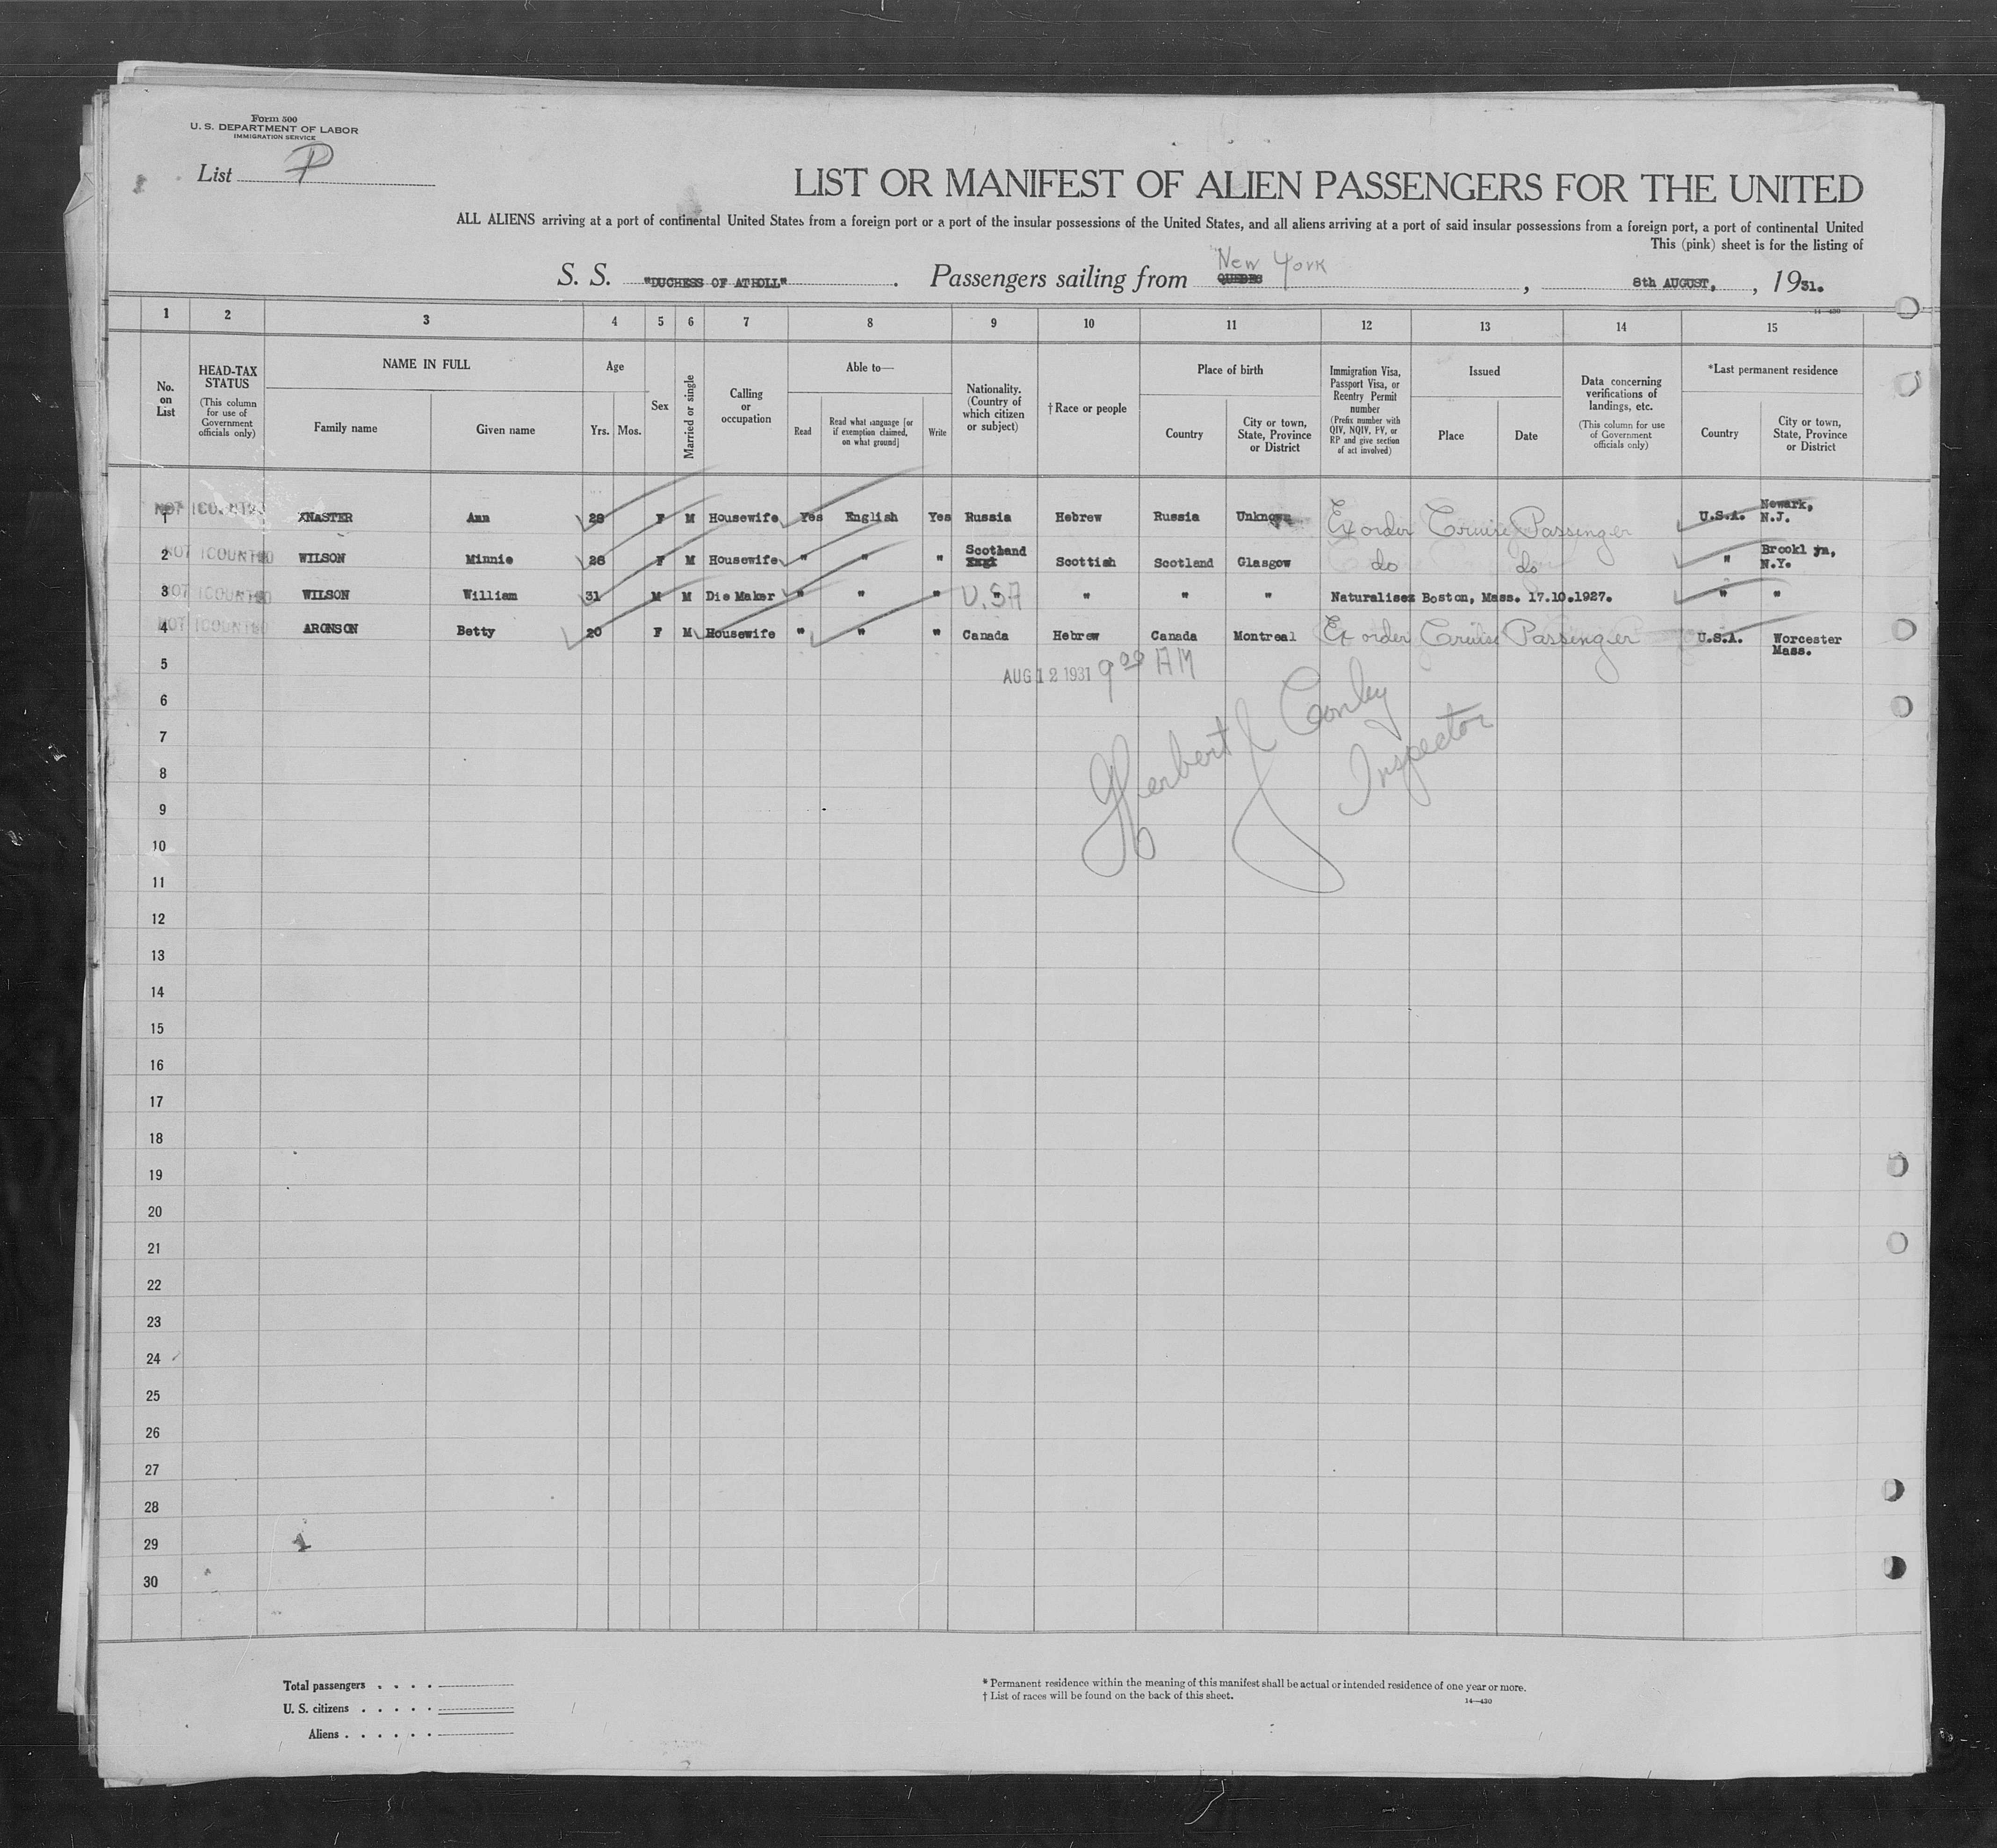 Form 500
U. S. DEPARTMENT OF LABOR
IMMIGRATION SERVICE
List P
LIST OR MANIFEST OF ALIEN PASSENGERS FOR THE UNITED
ALL ALIENS arriving at a port of continental United States from a foreign port or a port of the insular possessions of the United States, and all aliens arriving at a port of said insular possessions from a foreign port, a port of continental United
This (pink) sheet is for the listing of
New York
S. S. "DUCHESS OF ATHOLL" . Passengers sailing from QUEBEC , 8th AUGUST, , 1931.
14-430
1 2 3 4 5 6 7 8 9 10 11 12 13 14 15
No. on List
HEAD-TAX STATUS
(This column for use of Government officials only)
NAME IN FULL
Family name Given name
Age
Yrs. Mos.
Sex
Married or single
Calling or occupation
Able to—
Read
Read what language [or if exemption claimed, on what ground]
Write
Nationality. (Country of which citizen or subject)
†Race or people
Place of birth
Country
City or town, State, Province or District
Immigration Visa, Passport Visa, or Reentry Permit number
(Prefix number with QIV, NQIV, PV, or RP and give section of act involved)
Issued
Place Date
Data concerning verifications of landings, etc.
(This column for use of Government officials only)
*Last permanent residence
Country
City or town, State, Province or District
1 NOT COUNTED XNASTER Ann 28 F M Housewife Yes English Yes Russia Hebrew Russia Unknown Ex order Cruise Passenger U.S.A. Newark, N.J.
2 NOT COUNTED WILSON Minnie 28 F M Housewife " " " Scotland Scottish Scotland Glasgow do do " Brooklyn, N.Y.
3 NOT COUNTED WILSON William 31 M M Die Maker " " " U.S.A " " " " Naturalised Boston, Mass. 17.10.1927. " "
4 NOT COUNTED ARONSON Betty 20 F M Housewife " " " Canada Hebrew Canada Montreal Ex order Cruise Passenger U.S.A. Worcester Mass.
5 AUG 12 1931 9 00 AM
6
Herbert J Conley
Inspector
7
8
9
10
11
12
13
14
15
16
17
18
19
20
21
22
23
24
25
26
27
28
29
30
Total passengers . . . .
U. S. citizens . . . . .
Aliens . . . . . .
* Permanent residence within the meaning of this manifest shall be actual or intended residence of one year or more.
† List of races will be found on the back of this sheet.
14-430